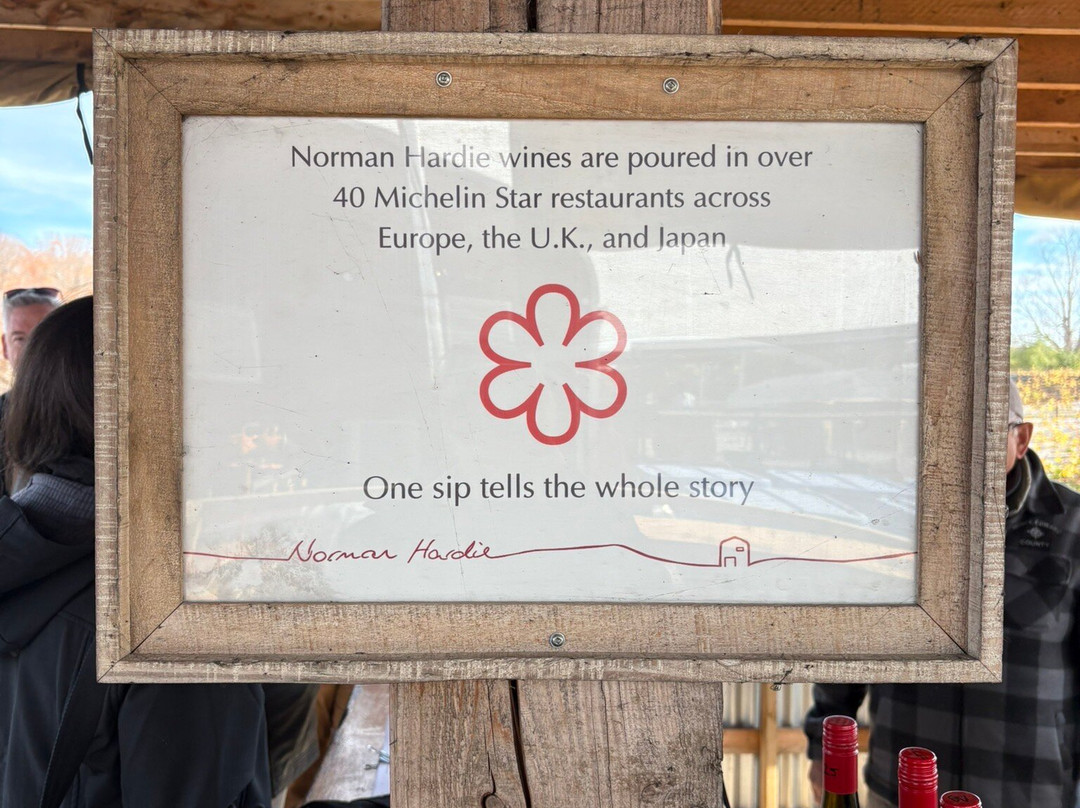 Norman Hardie wines are poured in over
40 Michelin Star restaurants across
Europe, the U.K., and Japan
One sip tells the whole story
Norman Hardie
COUNTY